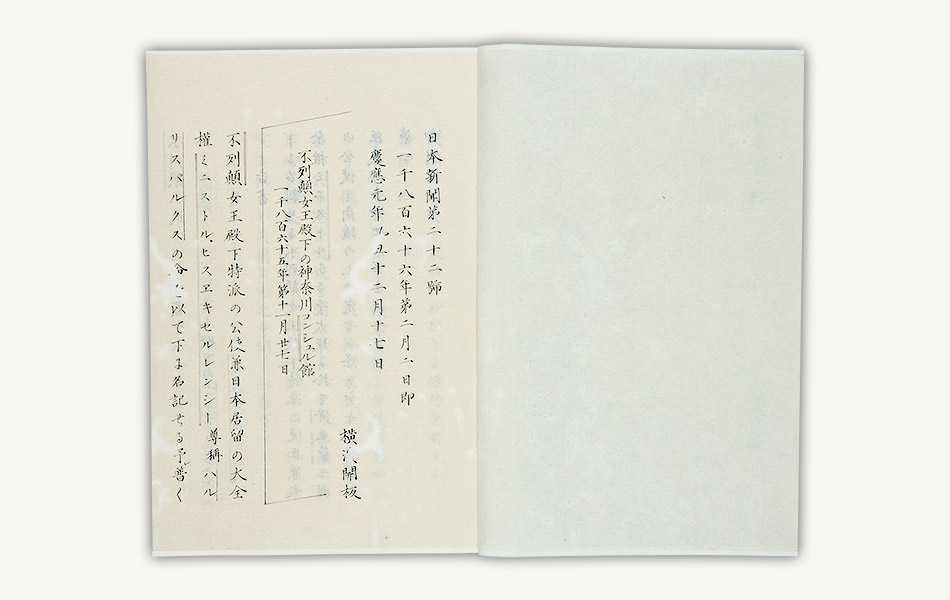 日本新聞第二十二號
一千八百六十六年第二月二日即
慶應元年乙丑十二月十七日
横濱開板
不列顛女王殿下の神奈川コンシュル館
一千八百六十五年第十一月廿七日
不列顛女王殿下特派の公使兼日本居留の大全
權ミニストル、ヒスヱキセルレンシー尊稱ハル
リスパルクスの命を以て下に名記せる予普く